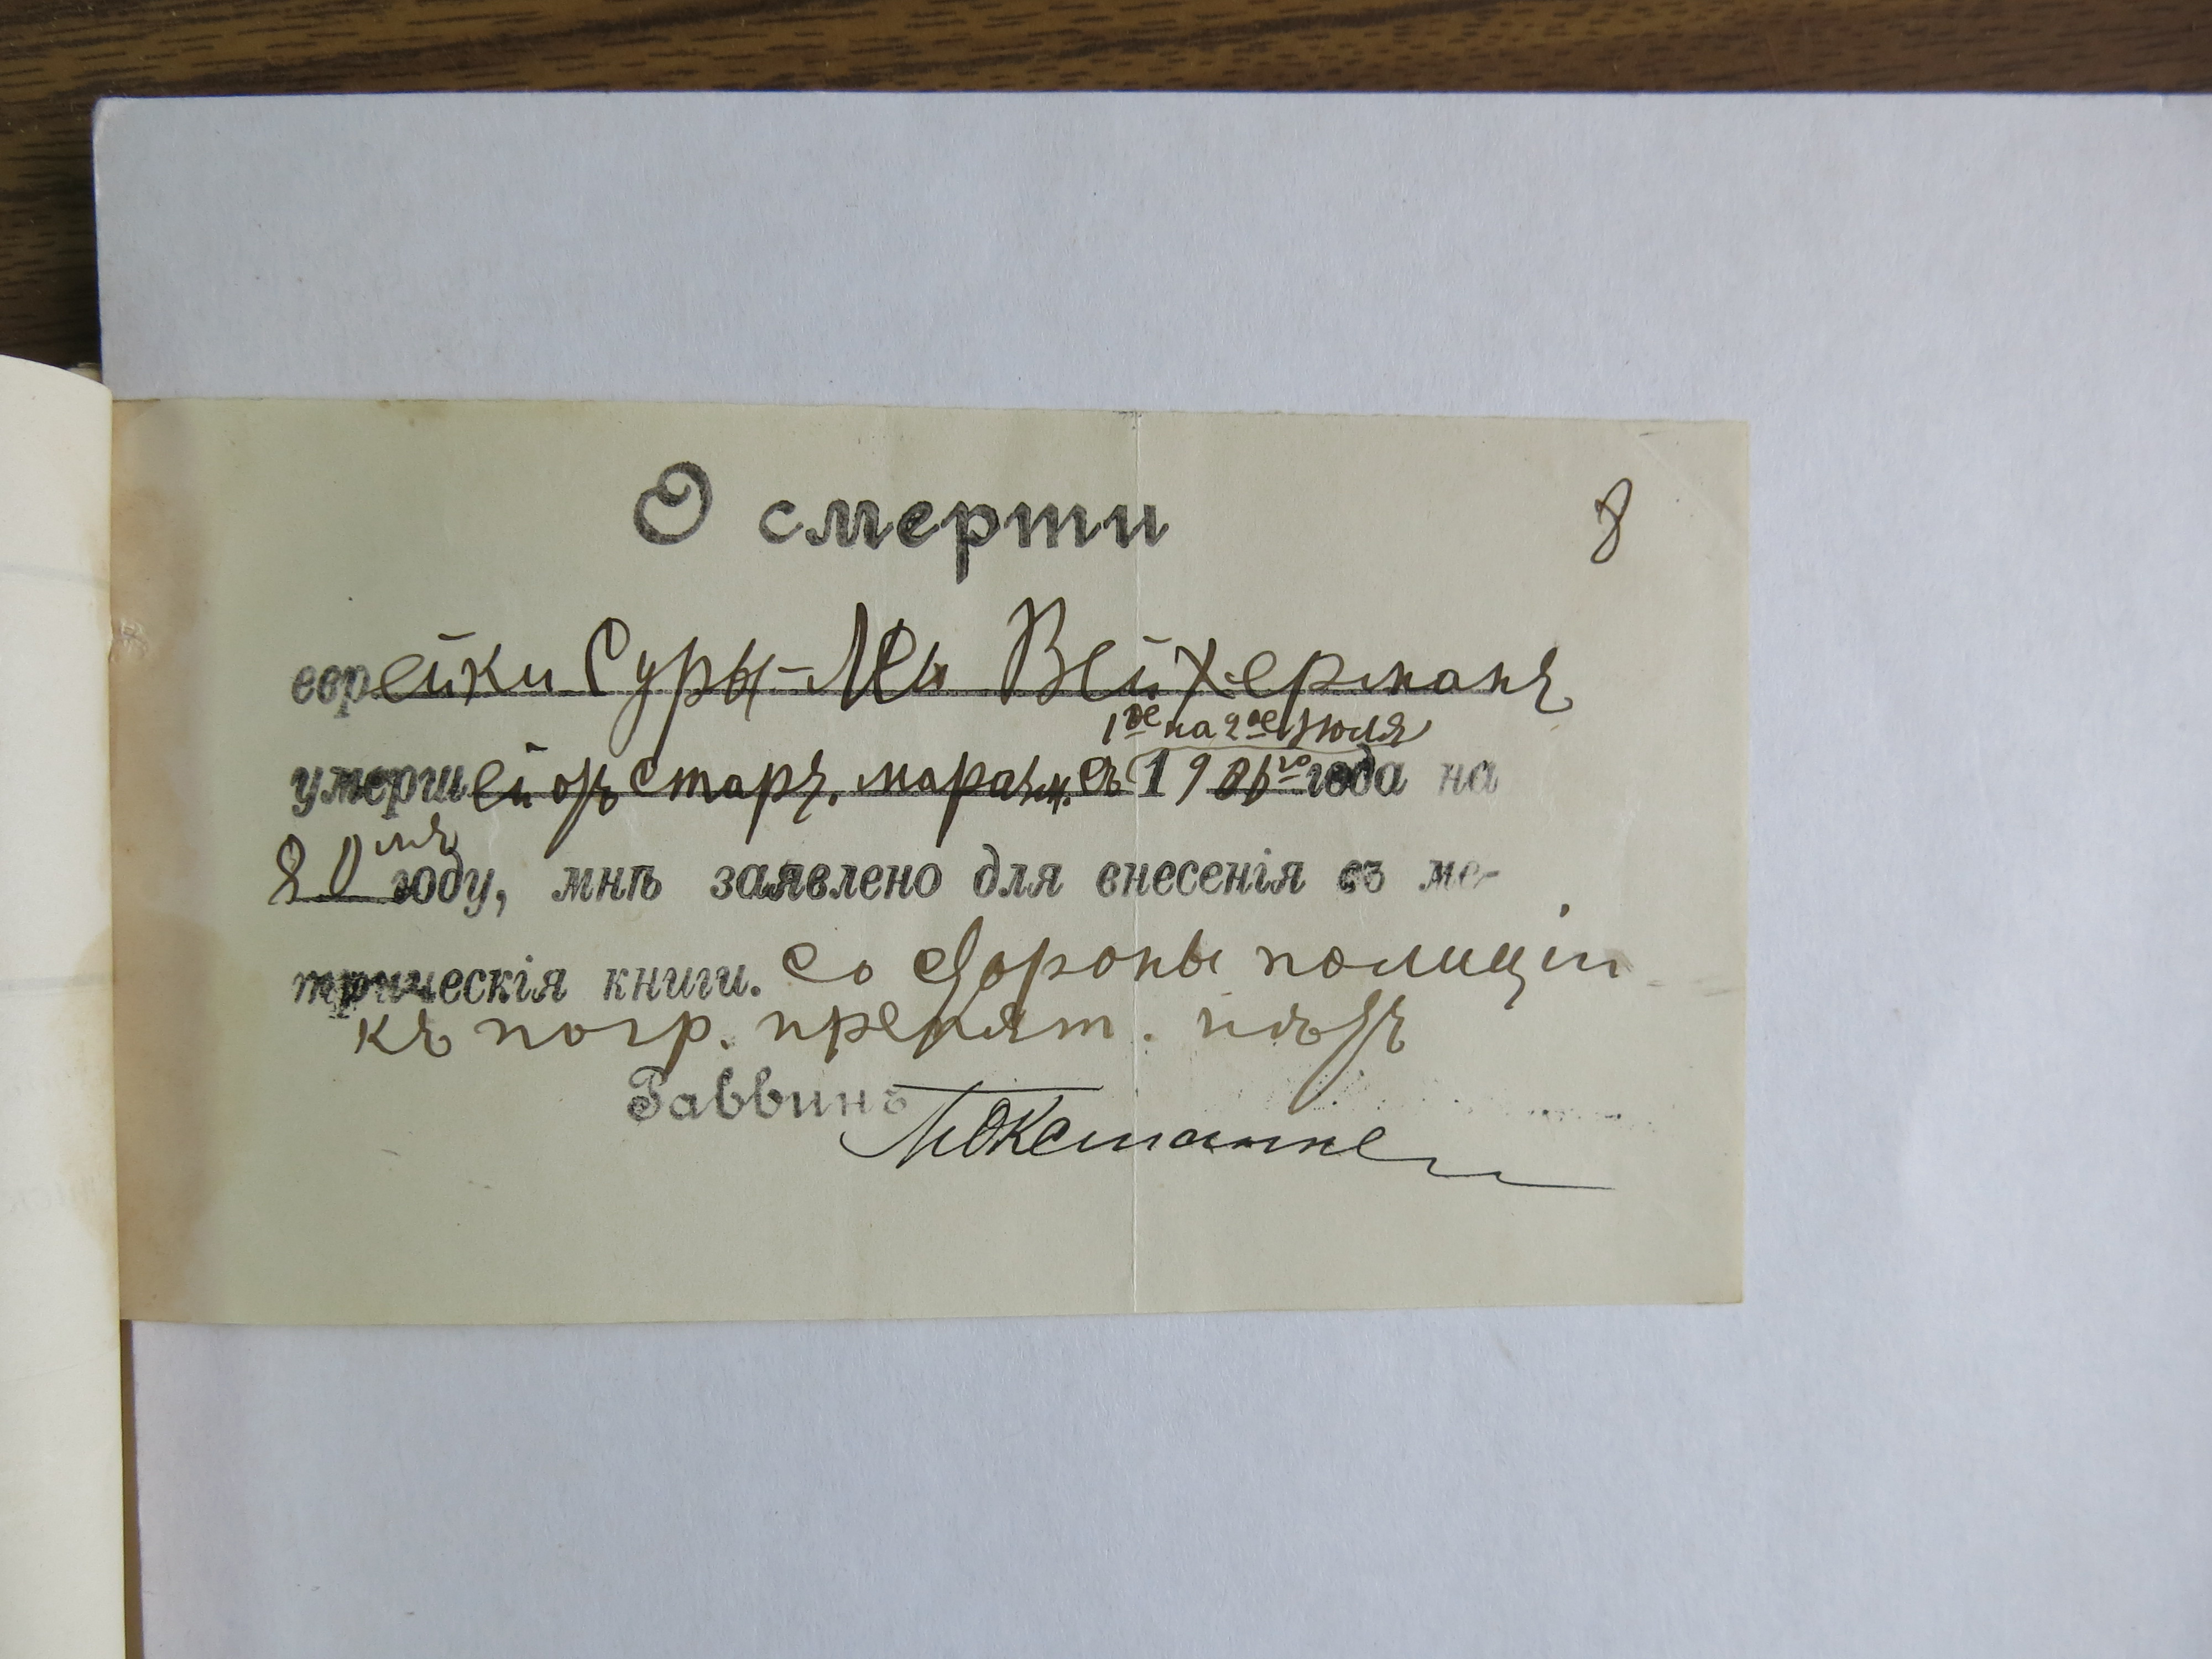 О смерти
8
еврейки Суры-Леи Вейхерманъ
1ое на 2ое Июля
умершей отъ старч. маразм. съ 1906го года на
80мъ году, мнѣ заявлено для внесенія въ ме-
трическія книги. Со стороны полиціи
къ погр. препят. нѣтъ
Раввинъ